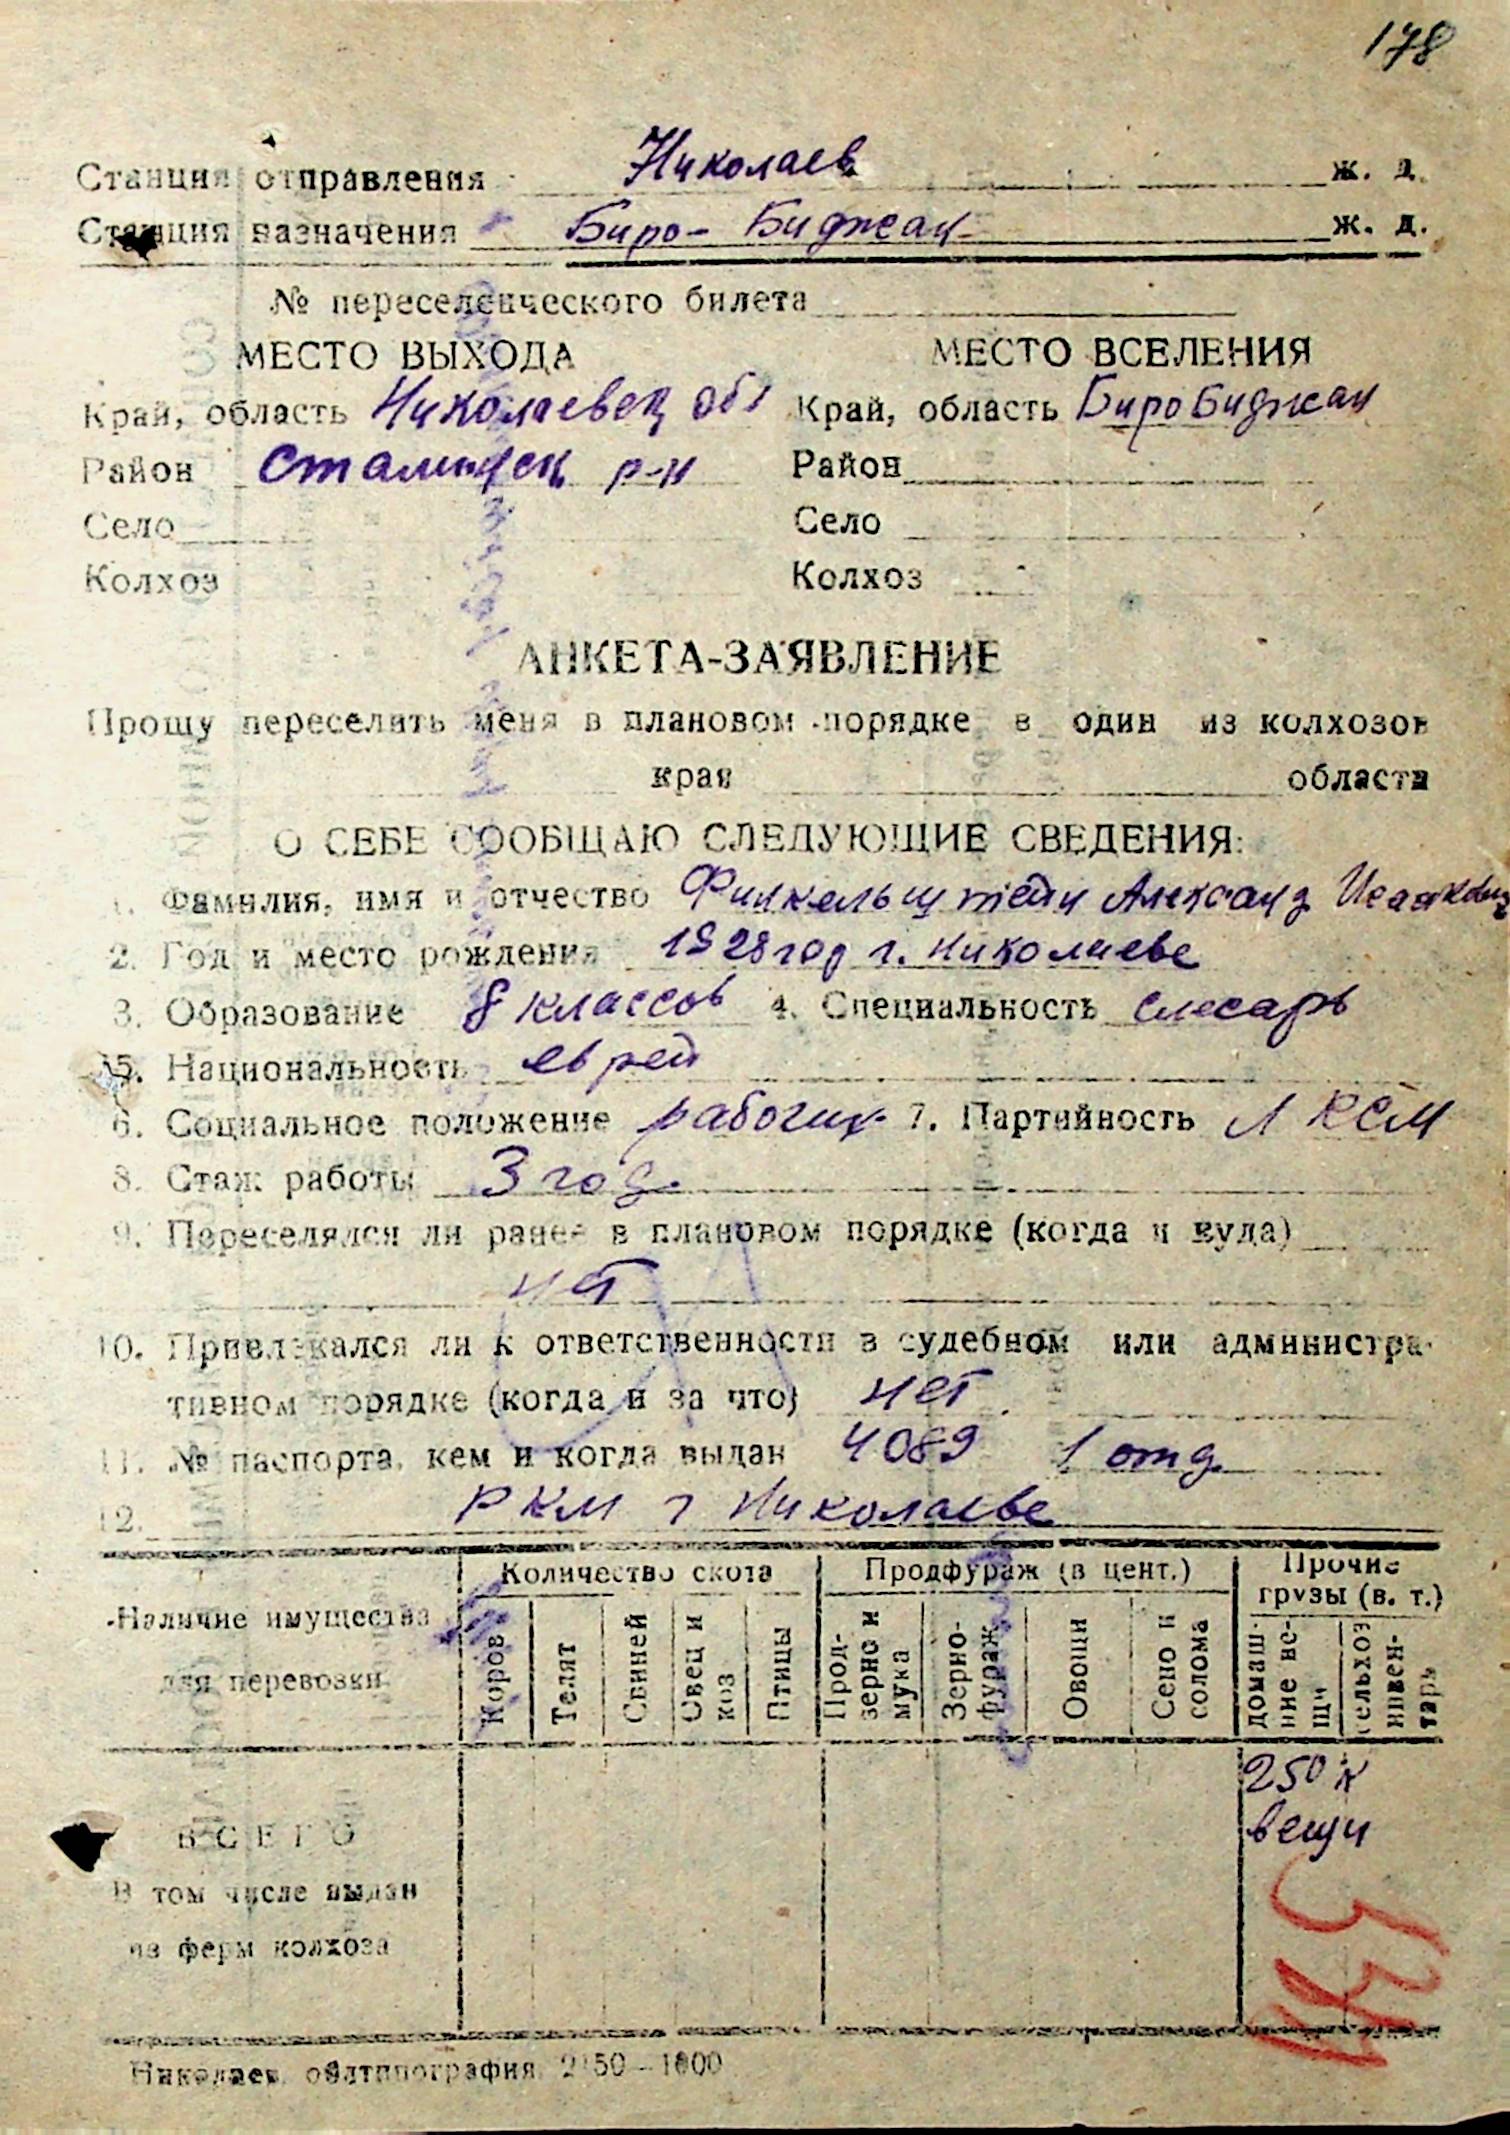 178
Станция отправления Николаев ж. д.
Станция назначения Биро-Биджан ж. д.
№ переселенческого билета
МЕСТО ВЫХОДА МЕСТО ВСЕЛЕНИЯ
Край, область Николаевск обл Край, область Биро Биджан
Район Сталинск р-н Район
Село Село
Колхоз Колхоз
АНКЕТА-ЗАЯВЛЕНИЕ
Прошу переселить меня в плановом порядке в один из колхозов
края области
О СЕБЕ СООБЩАЮ СЛЕДУЮЩИЕ СВЕДЕНИЯ:
1. Фамилия, имя и отчество Финкельштейн Александ Исаакович
2. Год и место рождения 1928 год г. Николаеве
3. Образование 8 классов 4. Специальность слесарь
5. Национальность еврей
6. Социальное положение рабочий 7. Партийность ЛКСМ
8. Стаж работы 3 год.
9. Переселялся ли ранее в плановом порядке (когда и куда)
нет
10. Привлекался ли к ответственности в судебном или администра-
тивном порядке (когда и за что) нет
11. № паспорта, кем и когда выдан 4089 1 отд.
12. РКМ г Николаеве
Наличие имущества для перевозки
Количество скота Продфураж (в цент.) Прочие грузы (в. т.)
Коров Телят Свиней Овец и коз Птицы Прод-зерно и мука Зерно-фураж Овощи Сено и солома домаш-ние ве-щи сельхоз инвен-тарь
250 к
вещи
ВСЕГО
В том числе выдан
из ферм колхоза
Николаев, облтипография 2150—1000